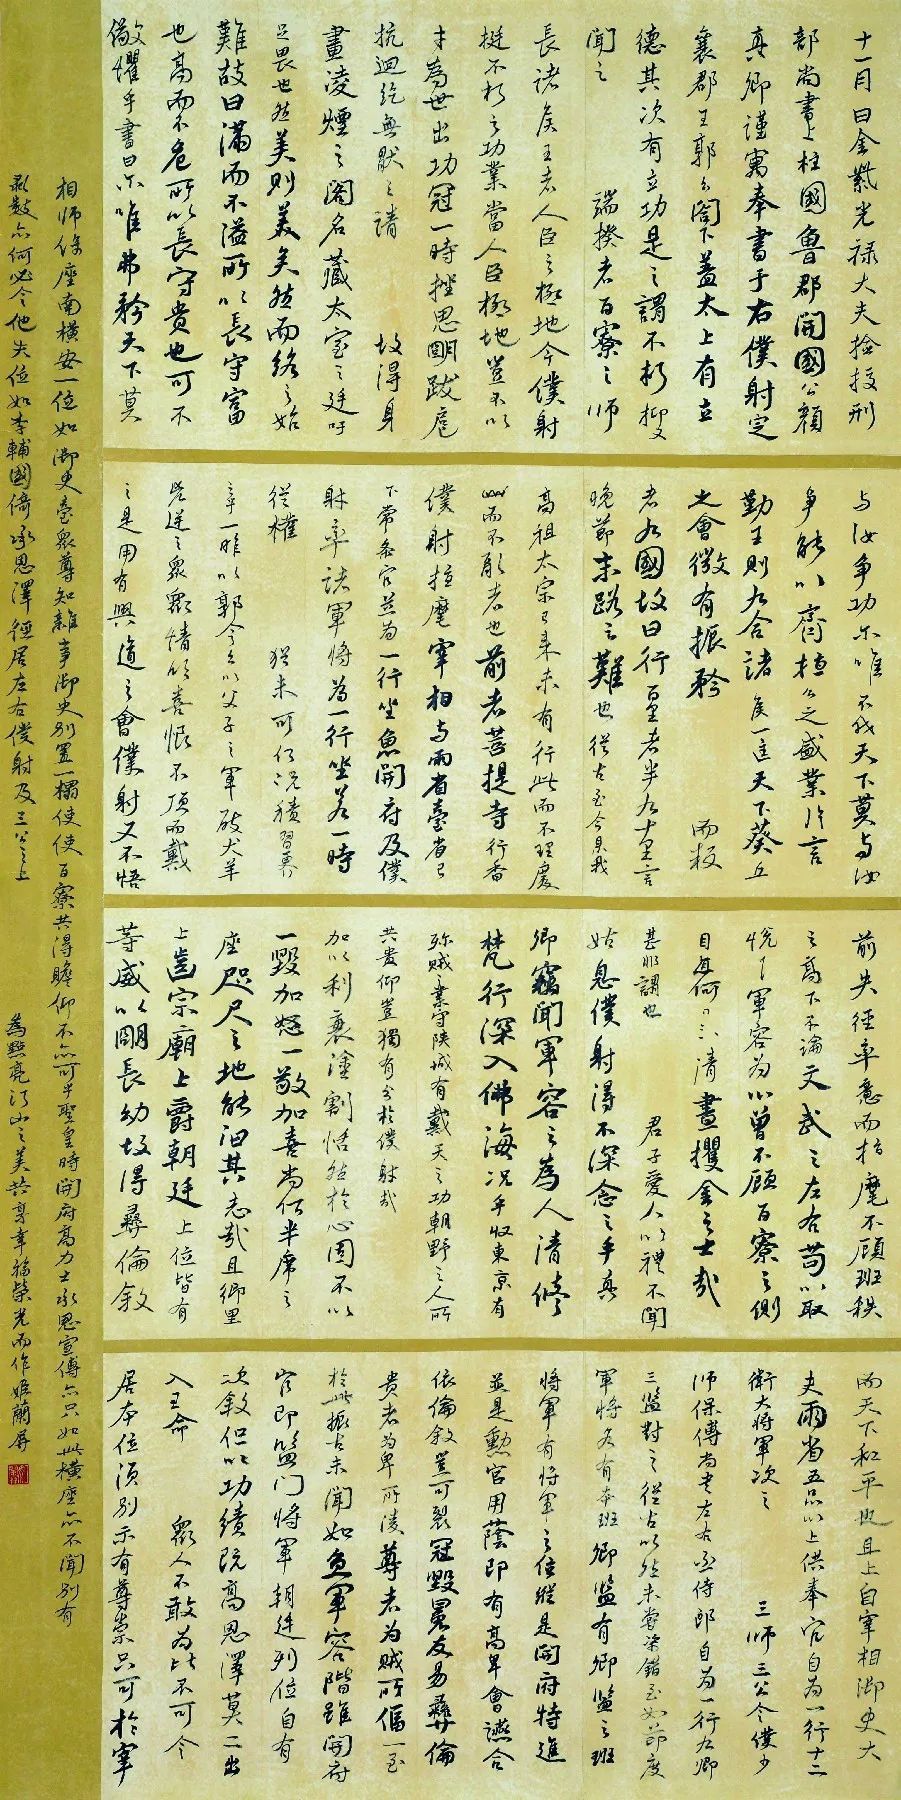 十一月日金紫光禄大夫撿挍刑
部尚書上柱國魯郡開國公顏
真卿謹寓奉書于右僕射定
襄郡王郭公閤下蓋太上有立
德其次有立功是之謂不朽抑又
聞之 端揆者百寮之師
長諸侯王者人臣之極地今僕射
挺不朽之功業當人臣極地豈不以
才為世出功冠一時挫思明跋扈
抗迴紇無厭之請 故得身
畫凌煙之閣名藏太室之廷吁
足畏也然美則美矣然而終之始
難故曰滿而不溢所以長守富
也高而不危所以長守貴也可不
儆懼乎書曰尔唯弗矜天下莫
与汝争功尔唯不伐天下莫与汝
争能以齊桓公之盛業片言
勤王則九合諸侯一匡天下葵丘
之會微有振矜 而叛
者九國故曰行百里者半九十里言
晚節末路之難也從古至今我
高祖太宗已来未有行此而不理廢
此而不亂者也前者菩提寺行香
僕射指麾宰相与两省臺省已
下常条官並為一行坐魚開府及僕
射率諸軍將為一行坐若一時
從權 猶未可何況積習更
行之乎一昨以郭令公以父子之軍破犬羊
凶逆之衆衆情欣喜恨不頂而戴
之是用有興道之會僕射又不悟
前失徑率意而指麾不顧班秩
之高下不論文武之左右苟以取
悦軍容為心曾不顧百寮之側
目亦何異清晝攫金之士哉
甚非謂也 君子愛人以禮不聞
姑息僕射得不深念之乎真
卿竊聞軍容之為人清修
梵行深入佛海況乎收東京有
殄賊之業守陝城有戴天之功朝野之人所
共貴仰豈獨有分於僕射哉
加以利衰塗割恬然於心固不以
一毀加怒一敬加喜尚何半席之
座咫尺之地能汩其志哉且鄉里
上齒宗廟上爵朝廷上位皆有
等威以明長幼故得彝倫敘
而天下和平也且上自宰相御史大
夫兩省五品以上供奉官自為一行十二
衛大將軍次之 三師三公令僕少
師保傅尚書左右丞侍郎自為一行九卿
三監對之從古以然未嘗參錯至如節度
軍將各有本班卿監有卿監之班
將軍有將軍之位縱是開府特進
並是勲官用蔭即有高卑會讌合
依倫敘豈可裂冠毀冕反易彝倫
貴者為卑所凌尊者為賊所偪一至
於此振古未聞如魚軍容階雖開府
官即監门將軍朝廷列位自有
次敘但以功績既高恩澤莫二出
入王命 衆人不敢為比不可令
居本位須別示有尊崇只可於宰
相師保座南横安一位如御史臺衆尊知雜事御史別置一榻使使百寮共得瞻仰不亦可乎聖皇時開府高力士承恩宣傳亦只如此横座亦不聞別有
禮數亦何必令他失位如李輔國倚承恩澤徑居左右僕射及三公之上 為點亮江山之美共享幸福榮光而作